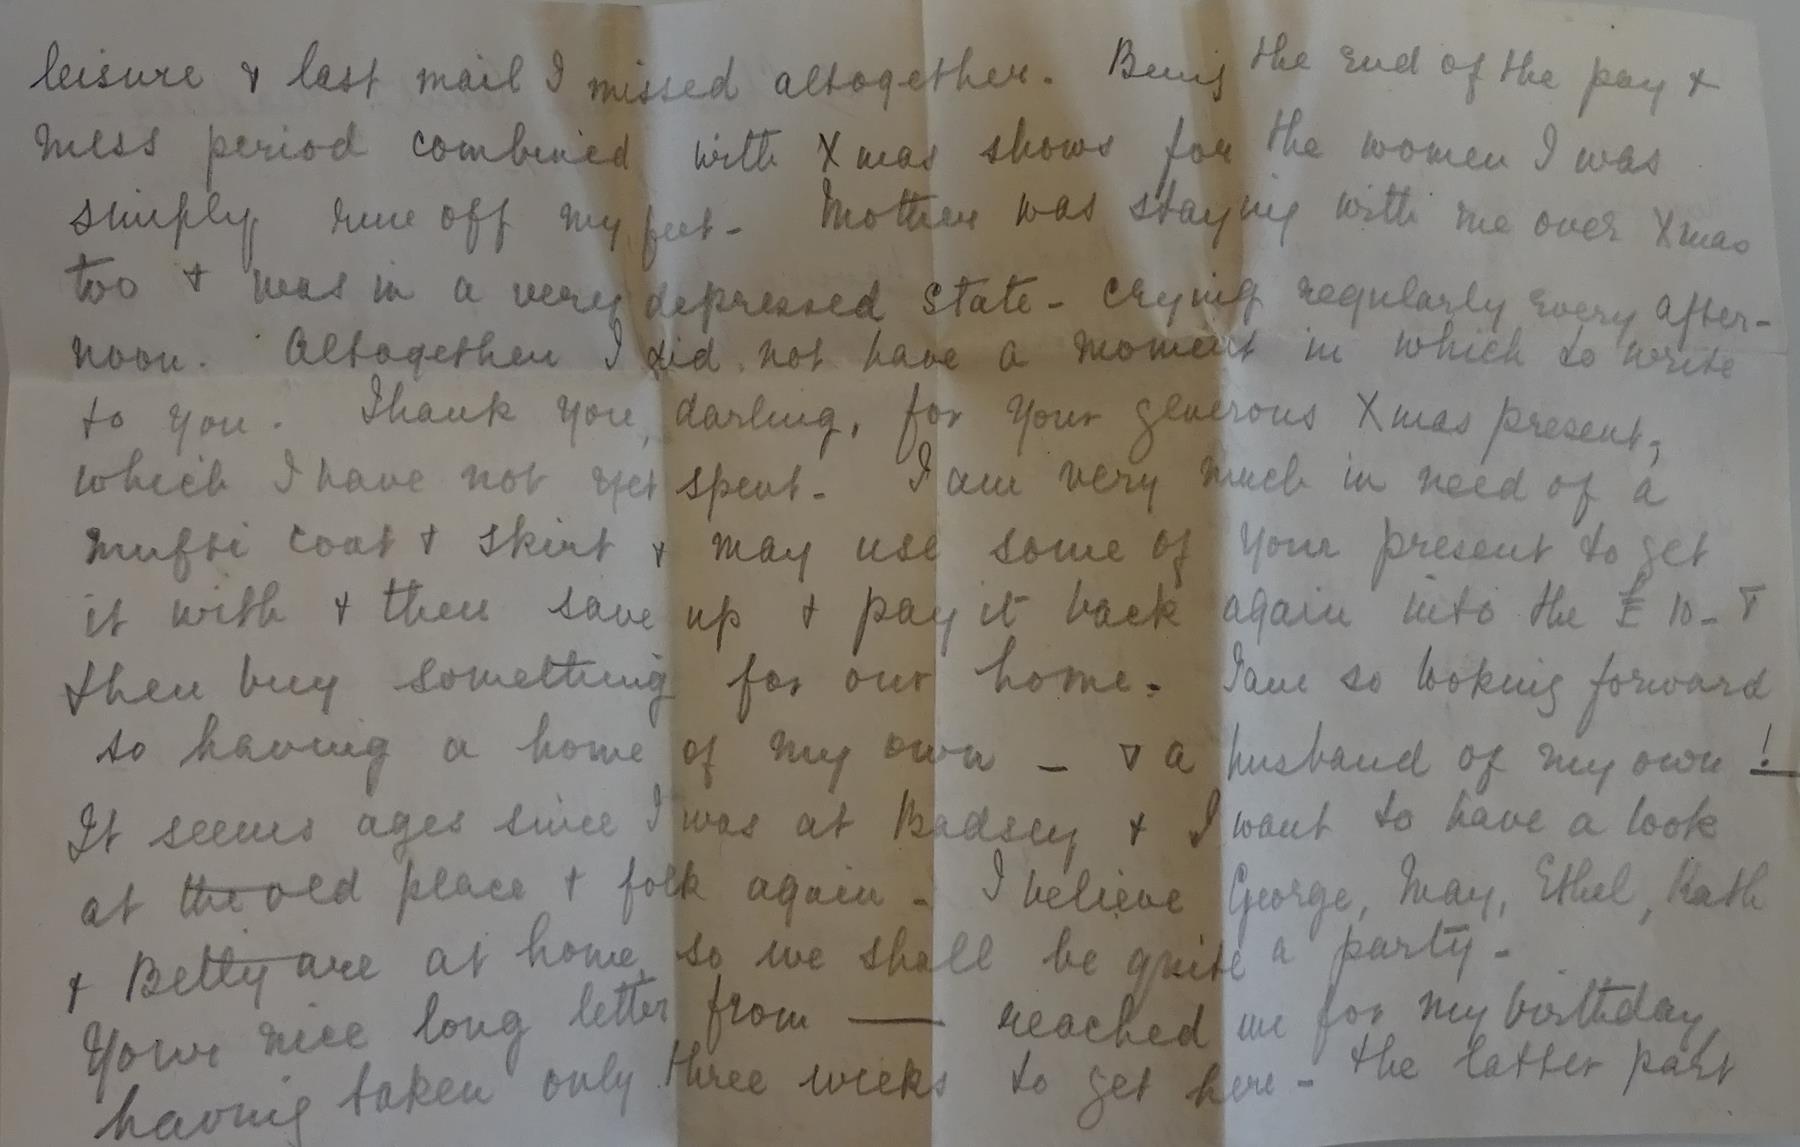 leisure & last mail I missed altogether. Being the end of the pay &
mess period combined with Xmas shows for the women I was
simply run off my feet - Mother was staying with me over Xmas
too & was in a very depressed state - crying regularly every after-
noon. Altogether I did not have a moment in which to write
to you. Thank you, darling, for your generous Xmas present,
which I have not yet spent - I am very much in need of a
mufti coat & skirt & may use some of your present to get
it with & then save up & pay it back again into the £10 - &
then buy something for our home - I am so looking forward
to having a home of my own - & a husband of my own!
It seems ages since I was at Badsey & I want to have a look
at the old place & folk again - I believe George, May, Ethel, Kath
& Betty are at home, so we shall be quite a party -
Your nice long letter from —— reached me for my birthday,
having taken only three weeks to get here - the latter part